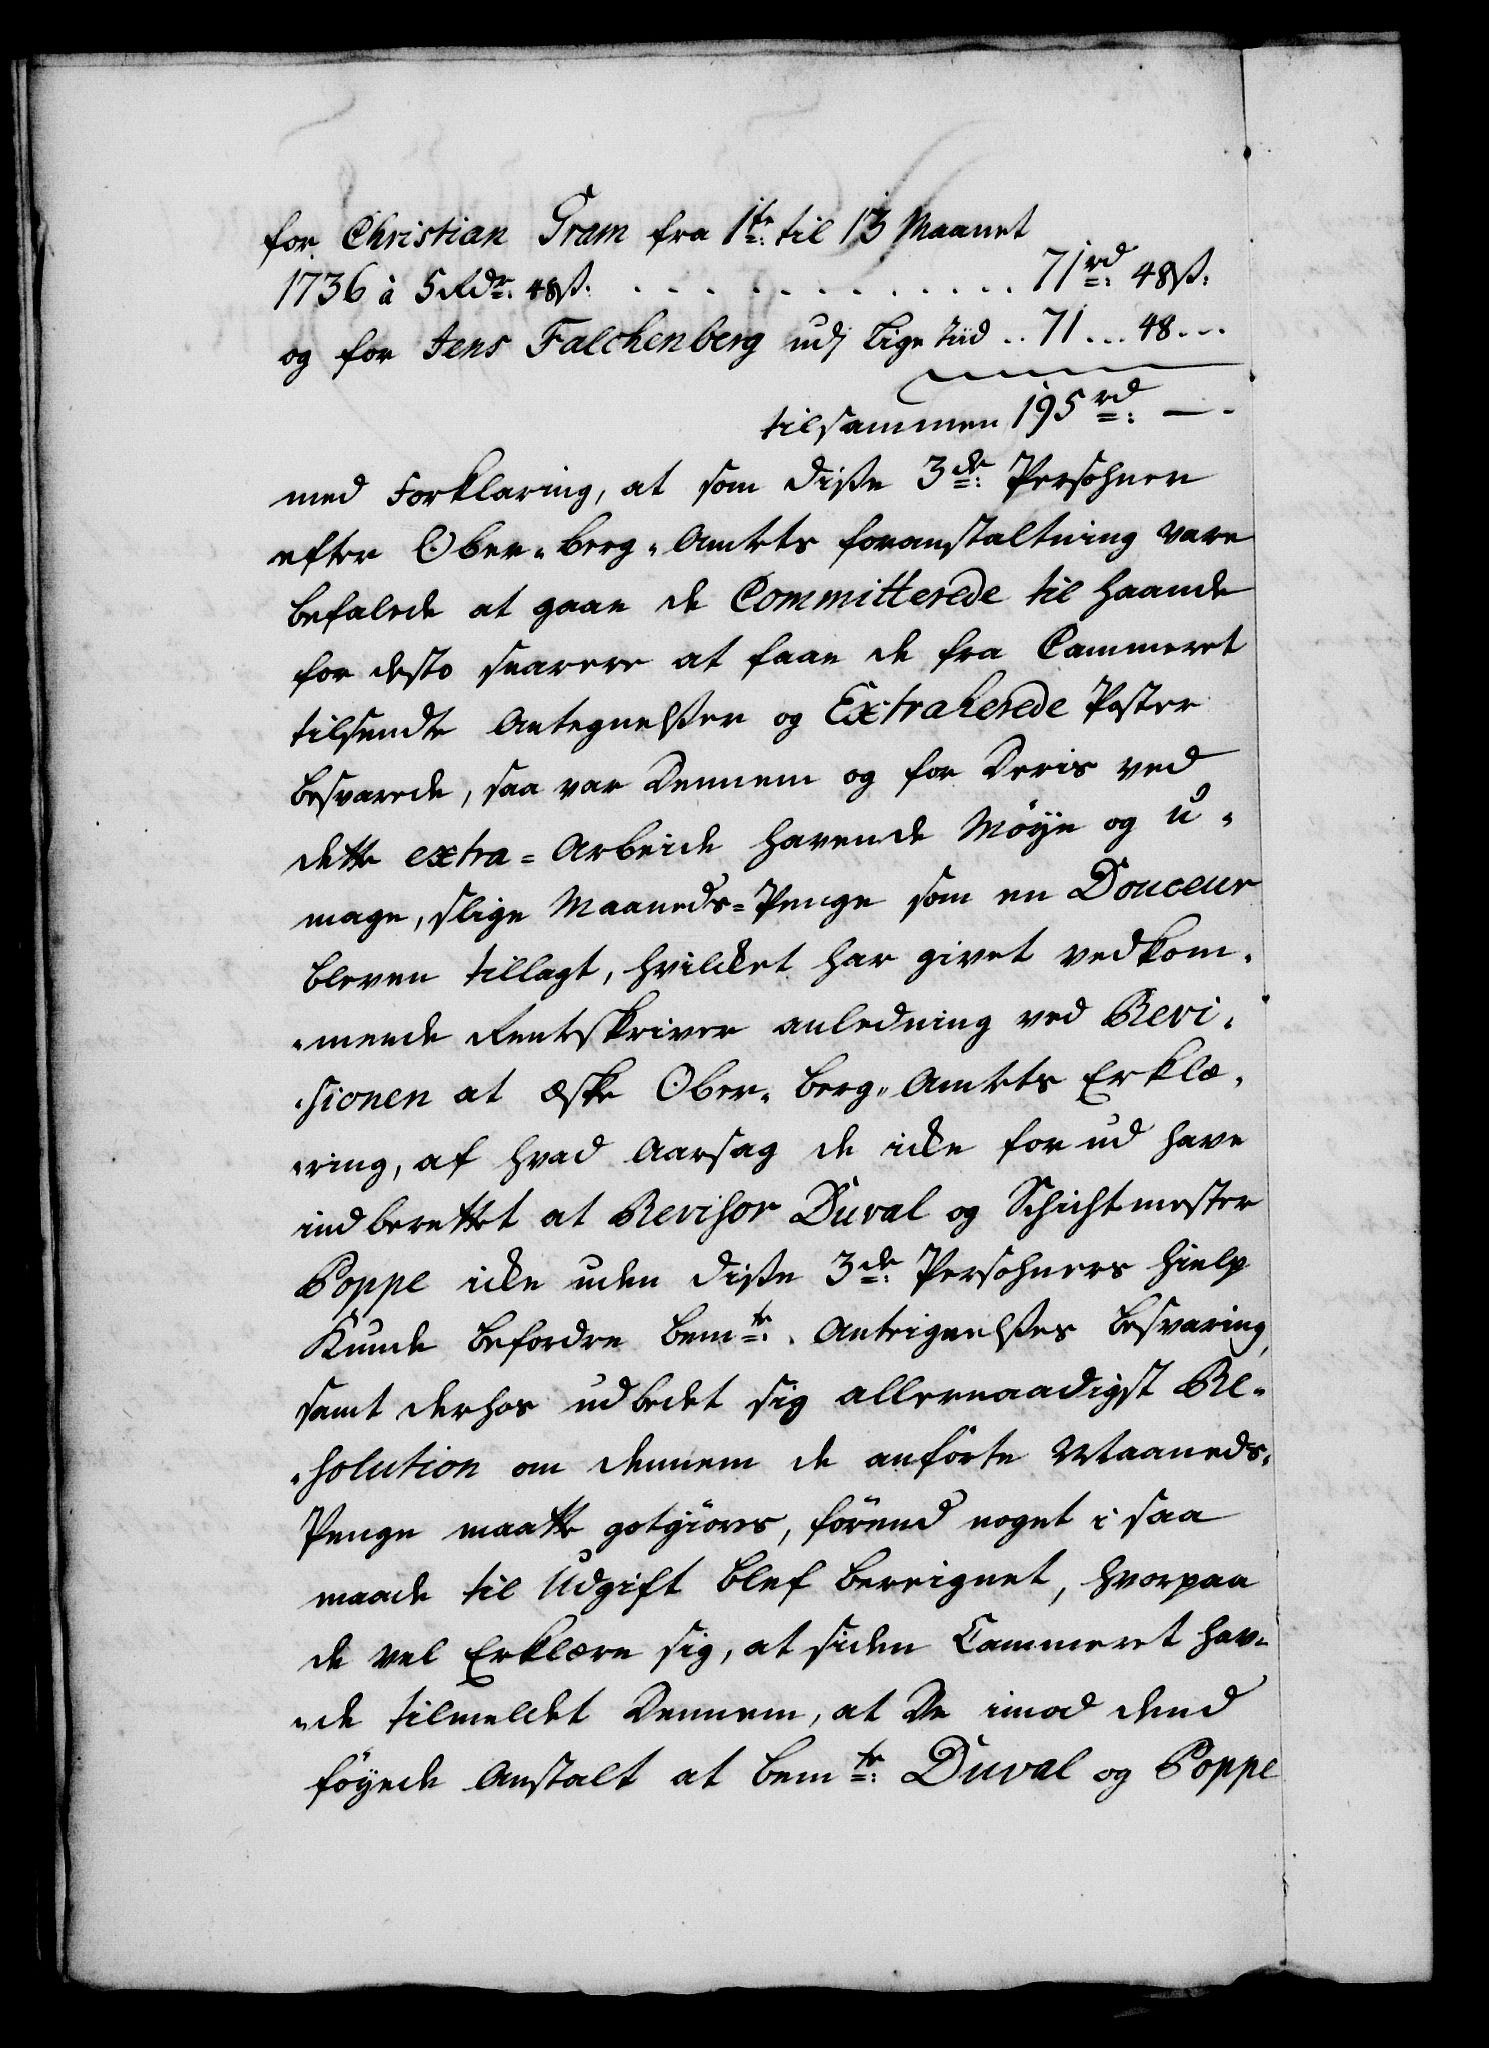 for Christian Tram fra 1te: til 13 Maanet
1736 à 5 Rdr: 48ß: . . . . . . . . . . . . 71rd: 48ß:
og for Jens Falchenberg udj Lige Tiid .. 71 ... 48 ...
tilsammen 195rd: — -
med Forklaring, at som diße 3de: Persohner
efter Ober-Berg-Amtets foranstaltning vare
befalede at gaae de Committerede til haande
for desto snarere at faae de fra Cammeret
tilsendte Antegnelßer og Extraherede Poster
besvarede, saa var Dennem og for Deris ved
dette extra-Arbeide havende Møye og U-
mage, slige Maaneds-Penge som en Douceur
bleven tillagt, hvilcket har givet vedkom-
-mende Rentskriver anledning ved Revi-
-sionen at æske Ober-Berg-Amtets Erklæ-
-ring, af hvad Aarsag de icke forud have
indberettet at Revisor Duval og Schichtmester
Poppe icke uden diße 3de: Persohners hielp
Kunde befordre bemte: Anteignelßes besvaring,
samt derhos udbedet sig allernaadigst Re-
-solution om dennem de anførte Maaneds-
Penge maatte gotgiøres, førend noget i saa
maade til Udgift blef bereignet, hvorpaa
de vel Erklære sig, at siden Cammeret hav-
-de tilmeldet Dennem, at De imod dend
føyede Anstalt at bemte: Duval og Poppe